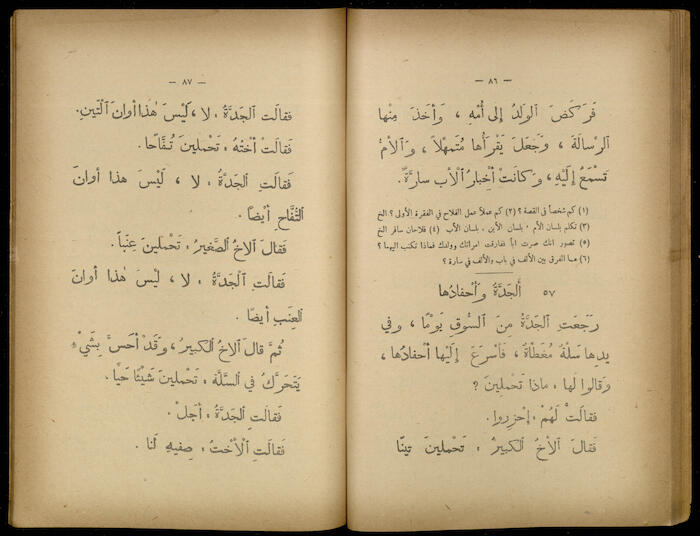 — ٨٦ —
فَرَكَضَ ٱلوَلَدُ إلى أُمِّهِ ، وَأَخَذَ مِنْها
ٱلرِّسالَةَ ، وَجَعَلَ يَقْرَأُها مُتَمَهِّلاً ، وَٱلأُمُّ
تَسْمَعُ إِلَيْهِ، وَكانَتْ أَخْبارُ ٱلأَبِ سارَّةً.
(١) كم شخصاً في القصة ؟ (٢) كم عملاً عمل الفلاح في الفقرة الأولى ؟ الخ
(٣) تكلم بلسان الأم ، بلسان الأبن ، بلسان الأب (٤) فلاحان سافر الخ
(٥) تصور انك صرت اباً ففارقت امرأتك وولدك فماذا تكتب اليهما ؟
(٦) ما الفرق بين الألف في باب والألف في سارة ؟
٥٧ أَلجَدَّةُ وَأَحْفادُها
رَجَعَتِ ٱلجَدَّةُ مِنَ ٱلسُّوقِ يَوْمًا ، وَفي
يَدِها سَلَّةٌ مُغَطَّاةٌ ، فَأَسْرَعَ إِلَيْها أَحْفادُها ،
وَقالُوا لَها : ماذا تَحْمِلينَ ؟
فَقالَتْ لَهُمْ : إِحْزِروا.
فَقالَ ٱلأَخُ ٱلكَبيرُ : تَحْمِلينَ تِينًا
— ٨٧ —
فَقالَتِ ٱلجَدَّةُ : لا ، لَيْسَ هٰذا أَوانَ ٱلتّينِ.
فَقالَتْ أُخْتُهُ : تَحْمِلينَ تُفَّاحًا.
فَقالَتِ ٱلجَدَّةُ : لا ، لَيْسَ هذا أَوانَ
ٱلتُّفَّاحِ أَيْضًا.
فَقالَ ٱلأَخُ ٱلصَّغيرُ : تَحْمِلينَ عِنَبًا.
فَقالَتِ ٱلجَدَّةُ : لا ، لَيْسَ هٰذا أَوانَ
ٱلعِنَبِ أَيضًا.
ثُمَّ قالَ ٱلأَخُ ٱلكَبيرُ ، وَقَدْ أَحَسَّ بِشَيْءٍ
يَتَحَرَّكُ في ٱلسَّلَّةِ : تَحْمِلينَ شَيْئًا حَيًّا.
فَقالَتِ ٱلجَدَّةُ : أَجَلْ.
فَقالَتِ ٱلأُخْتُ : صِفيهِ لَنا .